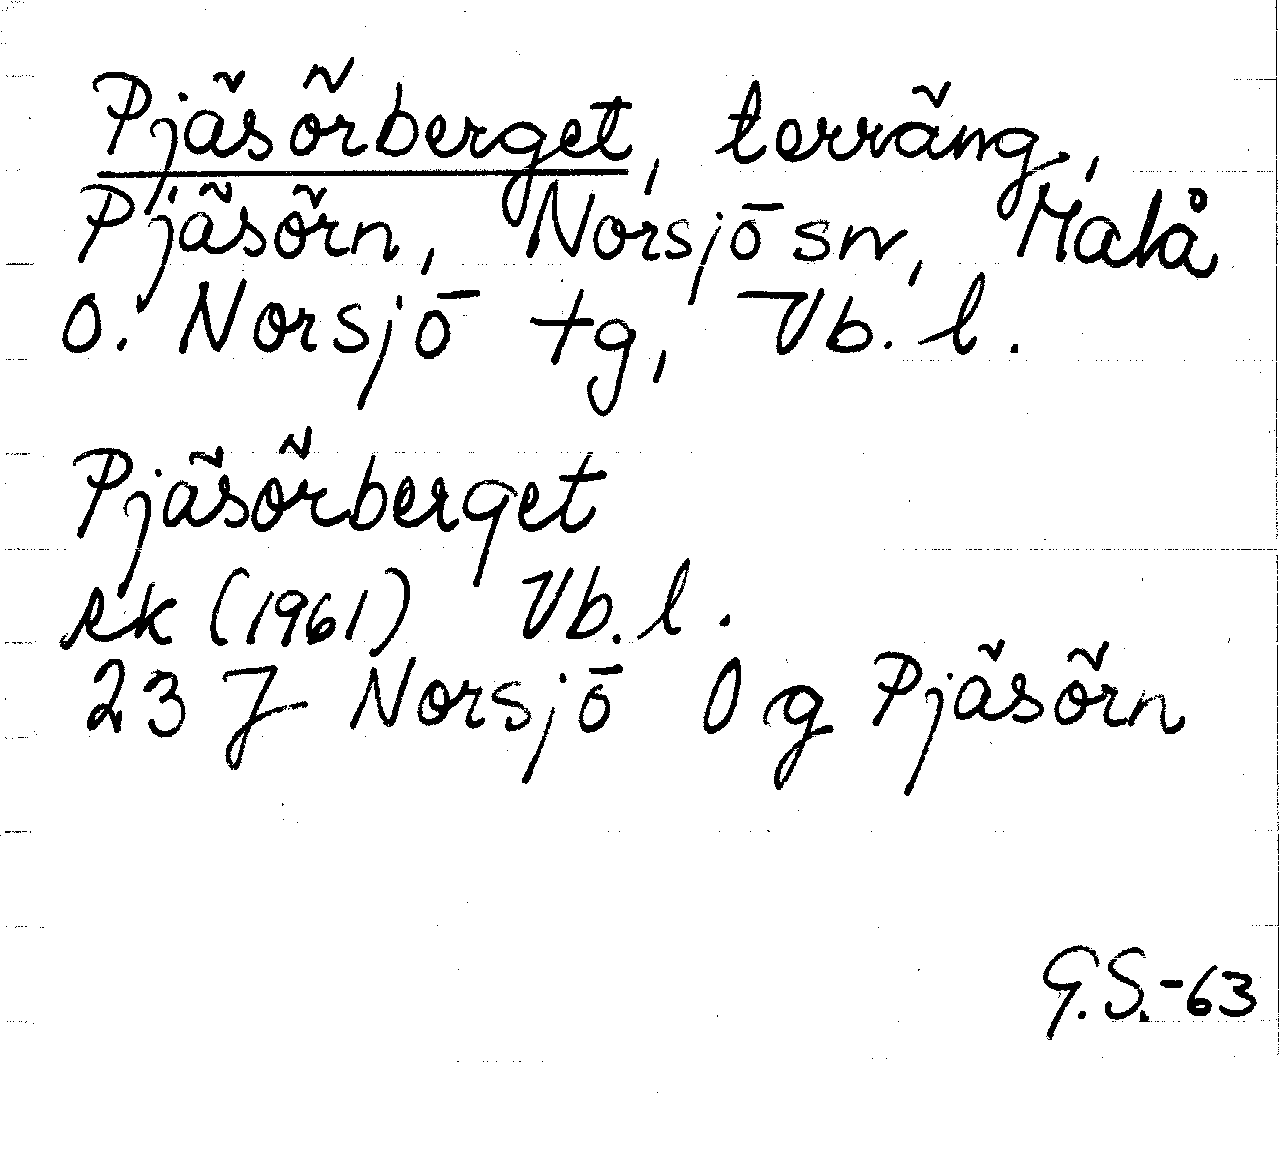 Pjäsörberget, terräng,
Pjäsörn, Norsjö sn, Malå
o. Norsjö tg, Vb. l.
Pjäsörberget
ek (1961) Vb. l.
23 J Norsjö 0 g Pjäsörn
G.S.-63